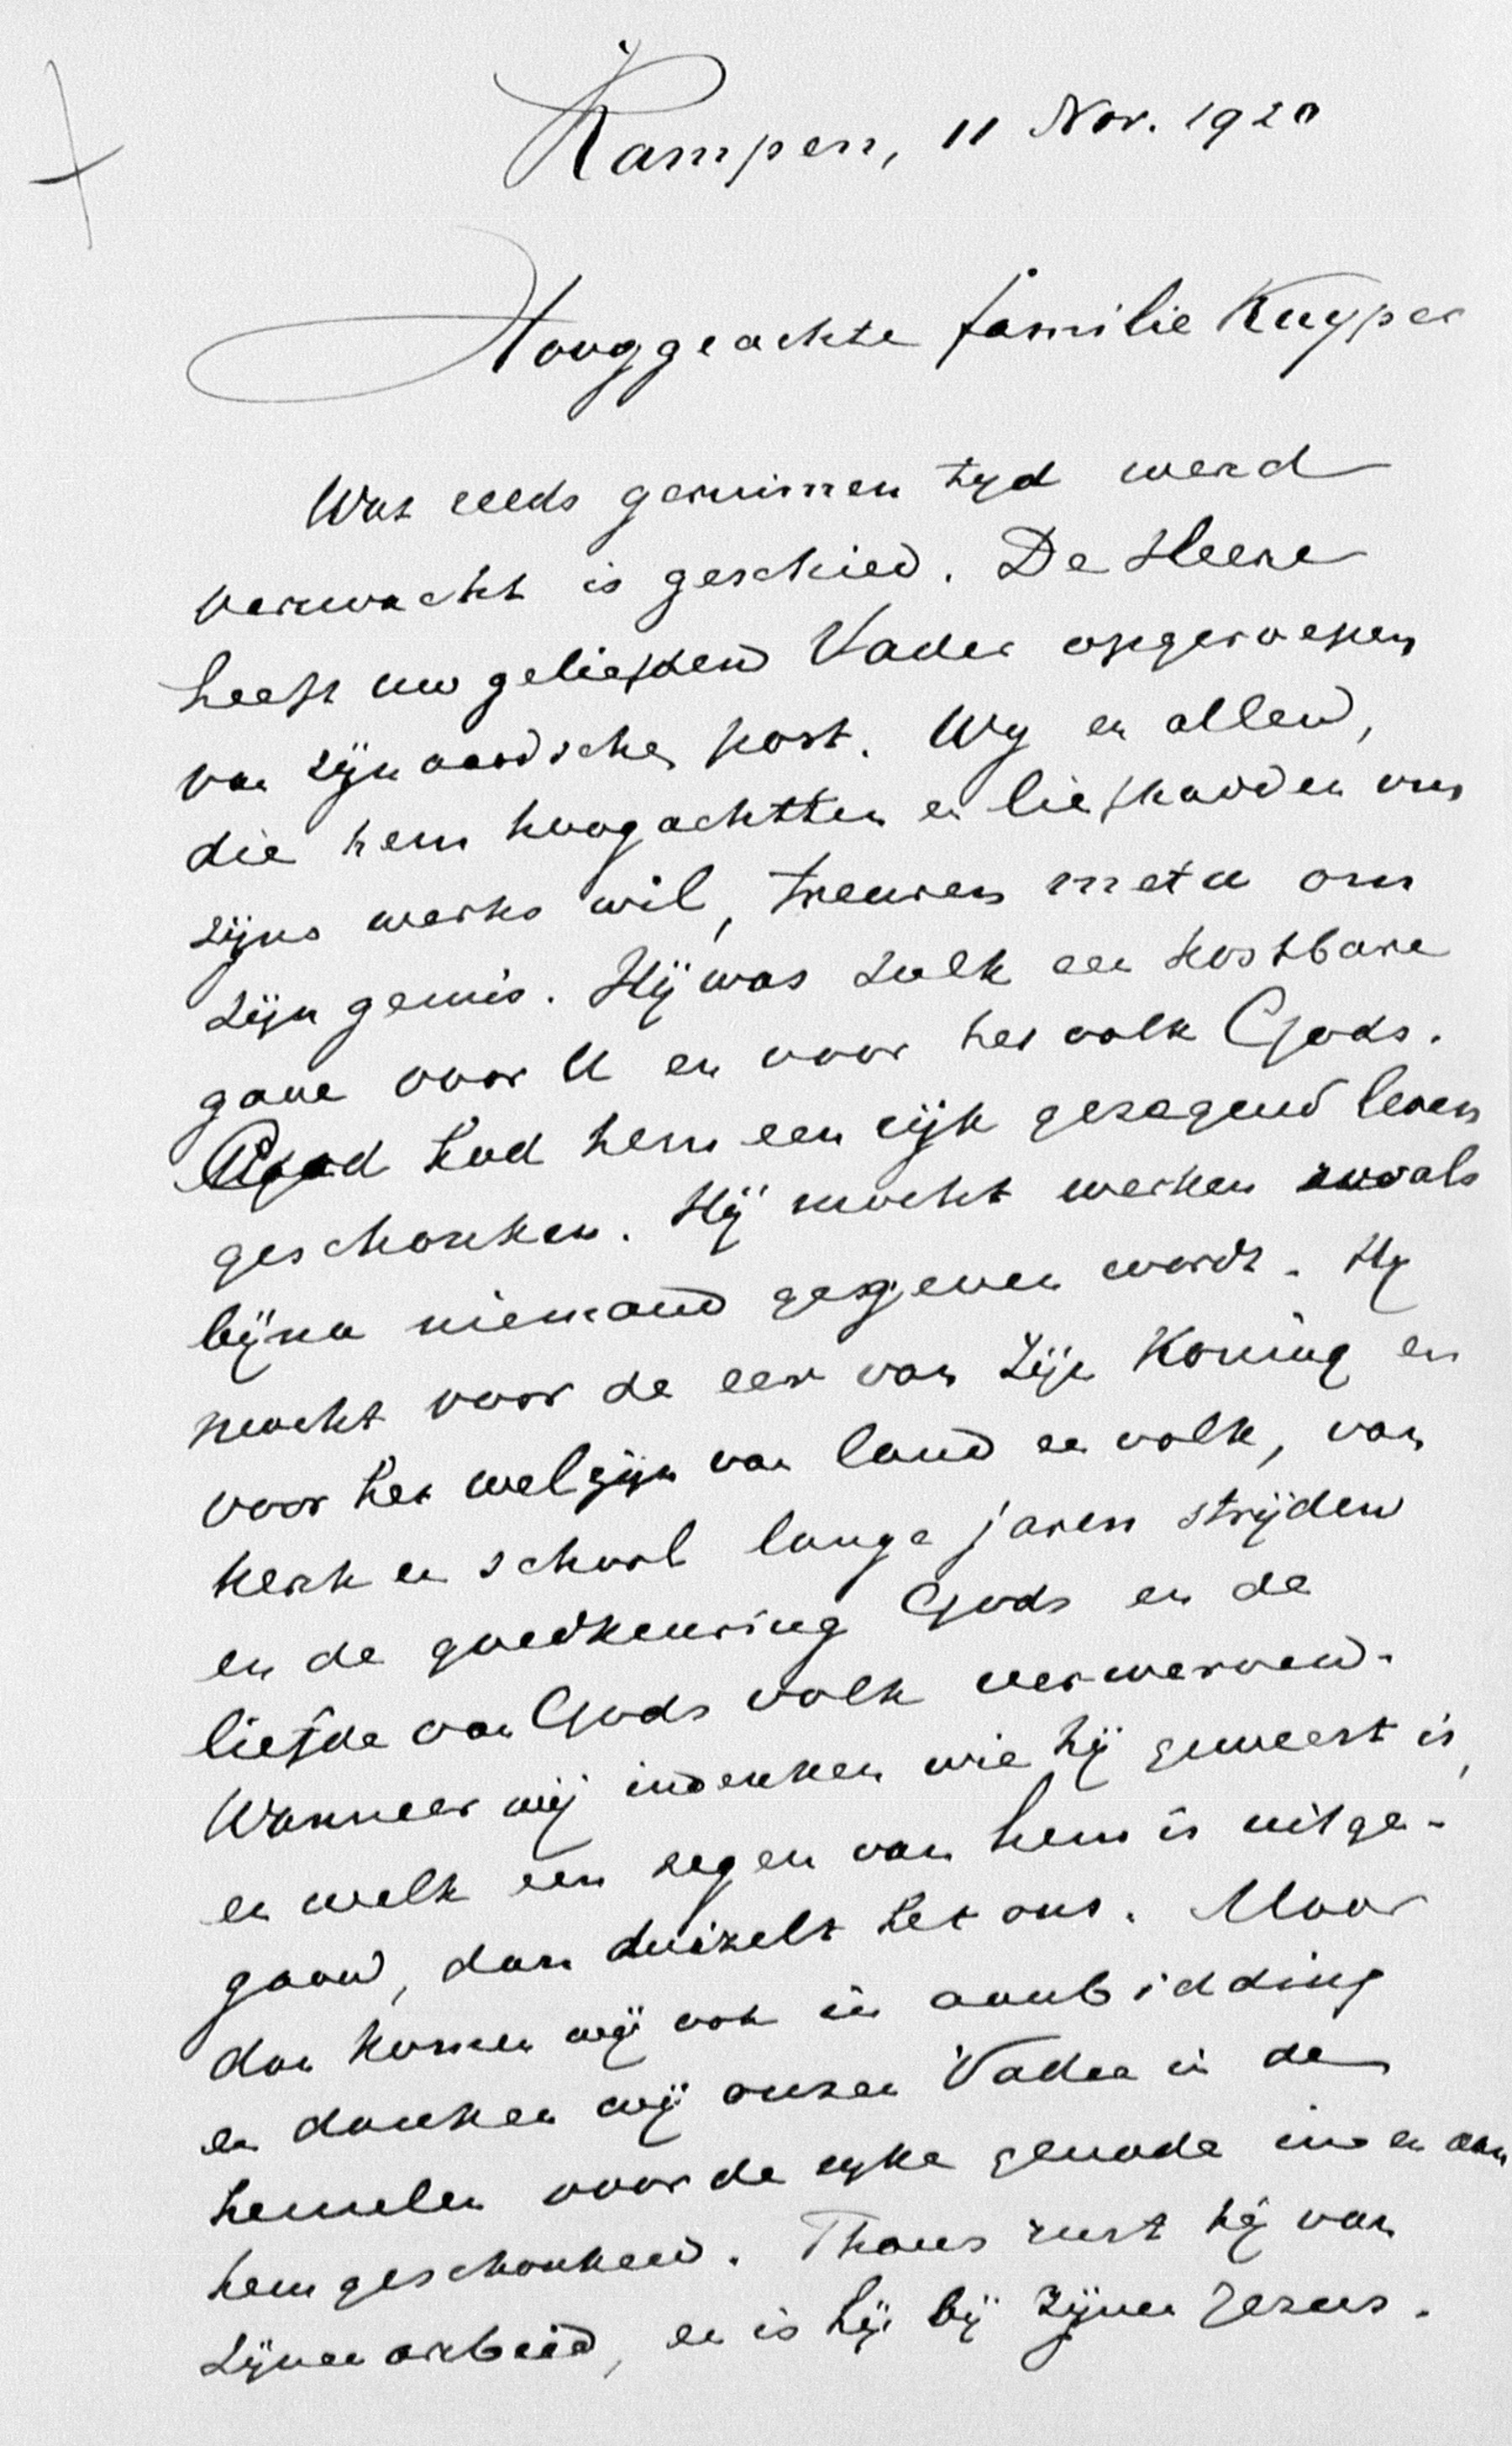 Kampen, 11 Nov. 1920
Hooggeachte familie Kuyper
Wat reeds geruimen tyd werd
verwacht is geschied. De Heere
heeft uw geliefden Vader opgeroepen
van zijn aardsche post. Wy en allen,
die hem hoogachtten en liefhadden om
zijns werks wil, treuren met u om
zijn gemis. Hij was zulk een kostbare
gave voor U en voor het volk Gods.
God had hem een rijk gezegend leven
geschonken. Hij mocht werken zooals
bijna niemand gegeven wordt. Hy
mocht voor de eer van Zijn Koning en
voor het welzijn van land en volk, van
kerk en school lange jaren strijden
en de goedkeuring Gods en de
liefde van Gods volk verwerven.
Wanneer wij indenken wie hij geweest is,
en welk een zegen van hem is uitge-
gaan, dan duizelt het ons. Maar
dan komen wij ook in aanbidding
en danken wij onzen Vader in de
hemelen voor de ryke genade in en aan
hem geschonken. Thans rust hij van
zijnen arbeid, en is hij bij zijnen Jezus.